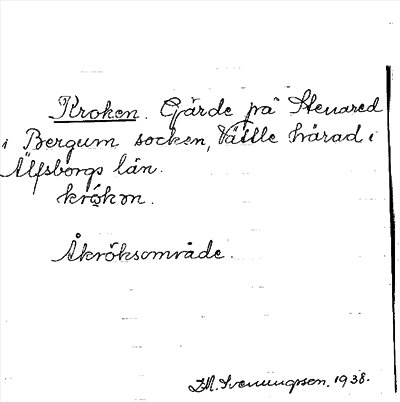 Kroken. Gärde på Stenared
i Bergum socken, Vättle härad i
Älfsborgs län.
krökən.
Åkröksområde.
D.M. Svenungsson. 1938.